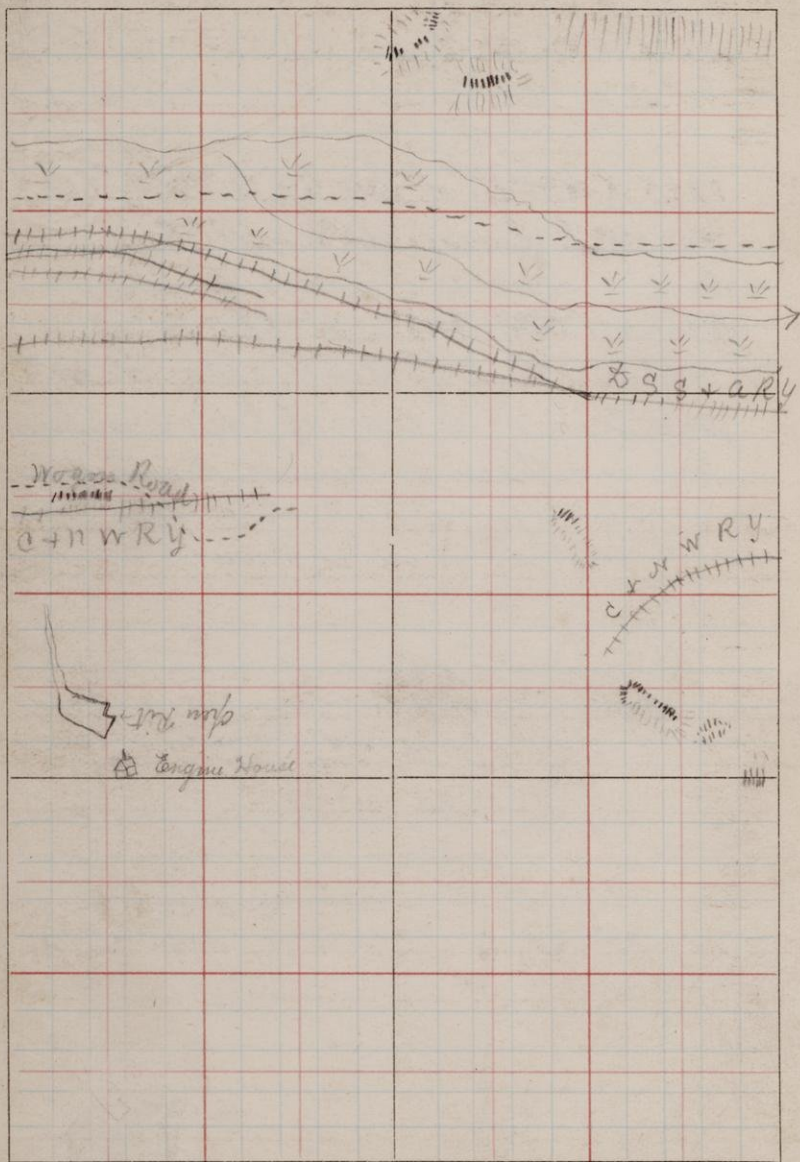 D S S + A R Y
Wagon Road
C + N W R Y
C + N W R Y
Open Pit
Engine House